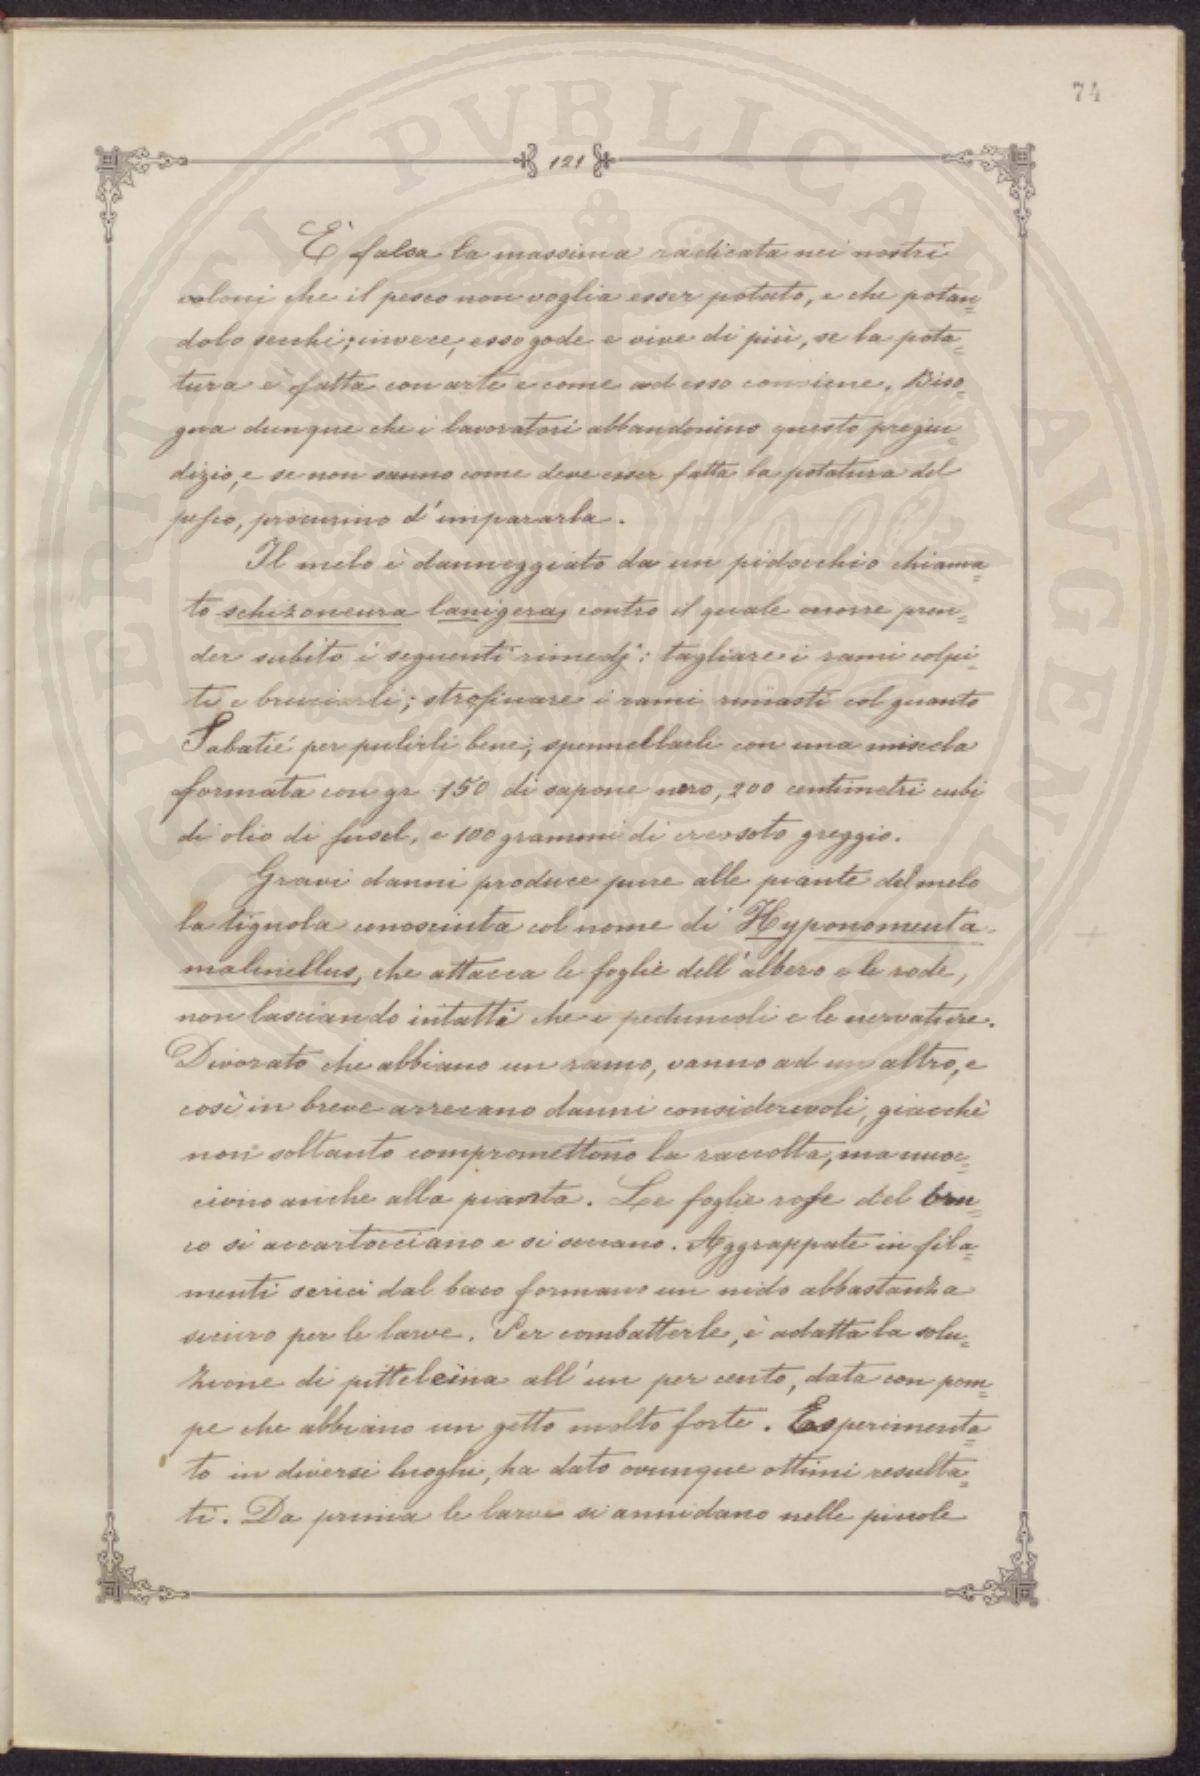 74
121
È falsa la massima radicata nei nostri
coloni che il pesco non voglia esser potato, e che potan=
dolo secchi; invece, esso gode e vive di più, se la pota=
tura è fatta con arte e come ad esso conviene. Biso=
gna dunque che i lavoratori abbandonino questo pregiu=
dizio, e se non sanno come deve esser fatta la potatura del
pesco, procurino d'impararla.
Il melo è danneggiato da un pidocchio chiama=
to schizoneura lanigera, contro il quale occorre pren=
der subito i seguenti rimedj: tagliare i rami colpi=
ti e bruciarli; strofinare i rami rimasti col guanto
Sabatié per pulirli bene; spennellarli con una miscela
formata con gr 150 di sapone nero, 200 centimetri cubi
di olio di fusel, e 100 grammi di creosoto greggio.
Gravi danni produce pure alle piante del melo
la tignola conosciuta col nome di Hyponomeuta
malinellus, che attacca le foglie dell'albero e le rode,
non lasciando intatti che i peduncoli e le nervature.
Divorato che abbiano un ramo, vanno ad un altro, e
così in breve arrecano danni considerevoli, giacchè
non soltanto compromettono la raccolta, ma nuoc=
ciono anche alla pianta. Le foglie rose del bru=
co si accartocciano e si seccano. Aggrappate in fila=
menti serici dal baco formano un nido abbastanza
sicuro per le larve. Per combatterle, è adatta la solu=
zione di pitteleina all'un per cento, data con pom=
pe che abbiano un getto molto forte. Esperimenta=
to in diversi luoghi, ha dato ovunque ottimi resulta=
ti. Da prima le larve si annidano nelle piccole
PVBLICAE AVGENDAE